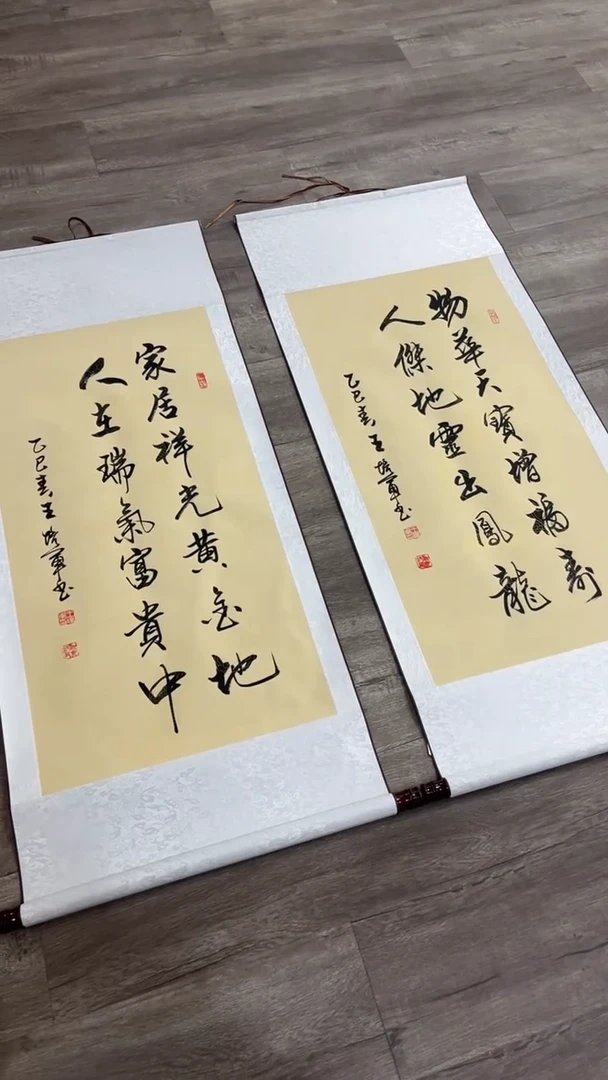 物華天寶增福壽
人傑地靈出鳳龍
乙巳春王培軍书
家居祥光黄金地
人在瑞氣富貴中
乙巳春王培軍书